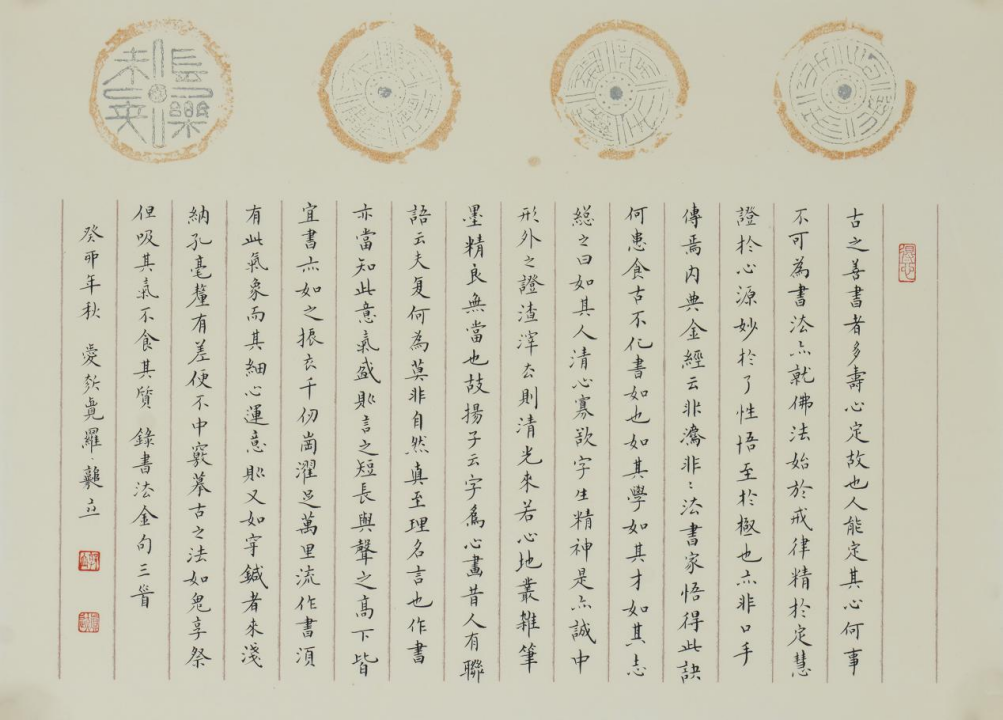 古之善書者多壽心定故也人能定其心何事
不可為書法亦就佛法始於戒律精於定慧
證於心源妙於了性悟至於極也亦非口手
傳焉內典金經云非瀉非〻法書家悟得此訣
何患食古不化書如也如其學如其才如其志
總之曰如其人清心寡欲字生精神是亦誠中
形外之證渣滓去則清光來若心地叢雜筆
墨精良無當也故揚子云字為心畫昔人有聯
語云夫复何為莫非自然真至理名言也作書
亦當知此意氣盛則言之短長與聲之高下皆
宜書亦如之振衣千仞崗濯足萬里流作書須
有此氣象而其細心運意則又如穿鍼者來淺
納孔毫釐有差便不中窾摹古之法如鬼享祭
但吸其氣不食其質 錄書法金句三首
癸卯年秋 愛新覺羅 立
長樂未央